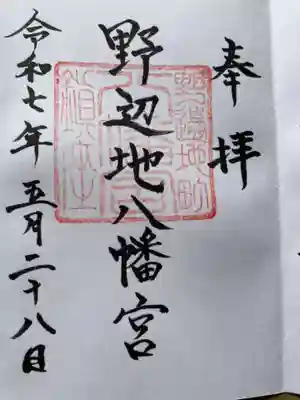 奉拝
野辺地八幡宮
令和七年五月二十八日